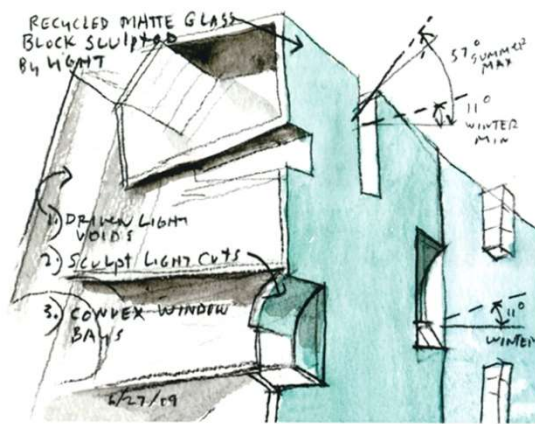 RECYCLED MATTE GLASS
BLOCK SCULPTED
BY LIGHT
57° SUMMER
MAX
11°
WINTER
MIN
1) DRIVEN LIGHT
VOIDS
2) SCULPT LIGHT CUTS
3. CONVEX WINDOW
BAYS
11°
WINTER
6/27/19